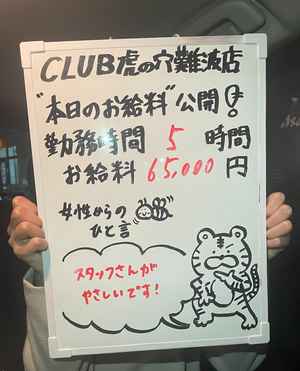 CLUB虎の穴難波店
"本日のお給料"公開!
勤務時間 5 時間
お給料 65,000 円
女性からの
ひと言
スタッフさんが
やさしいです!